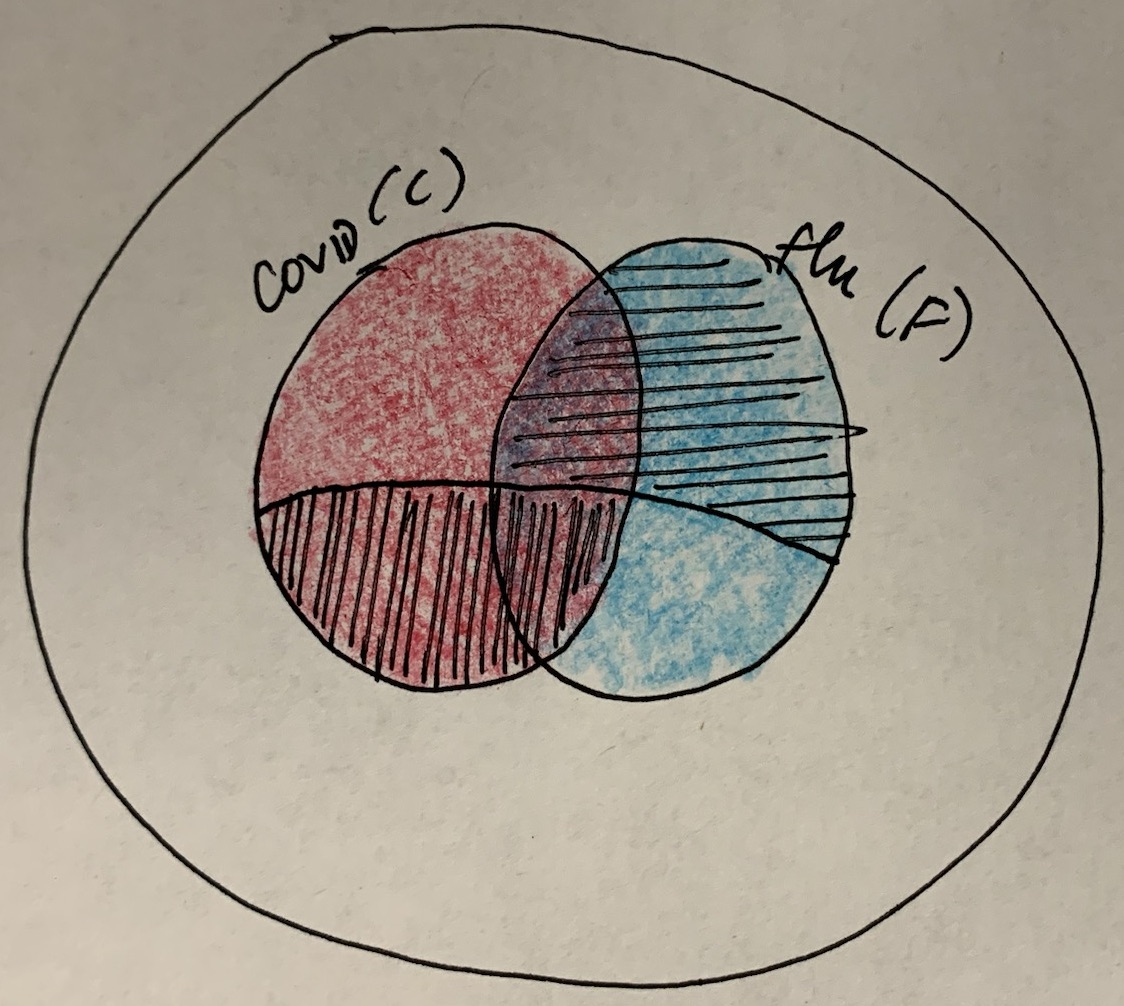 COVID (C)
flu (F)